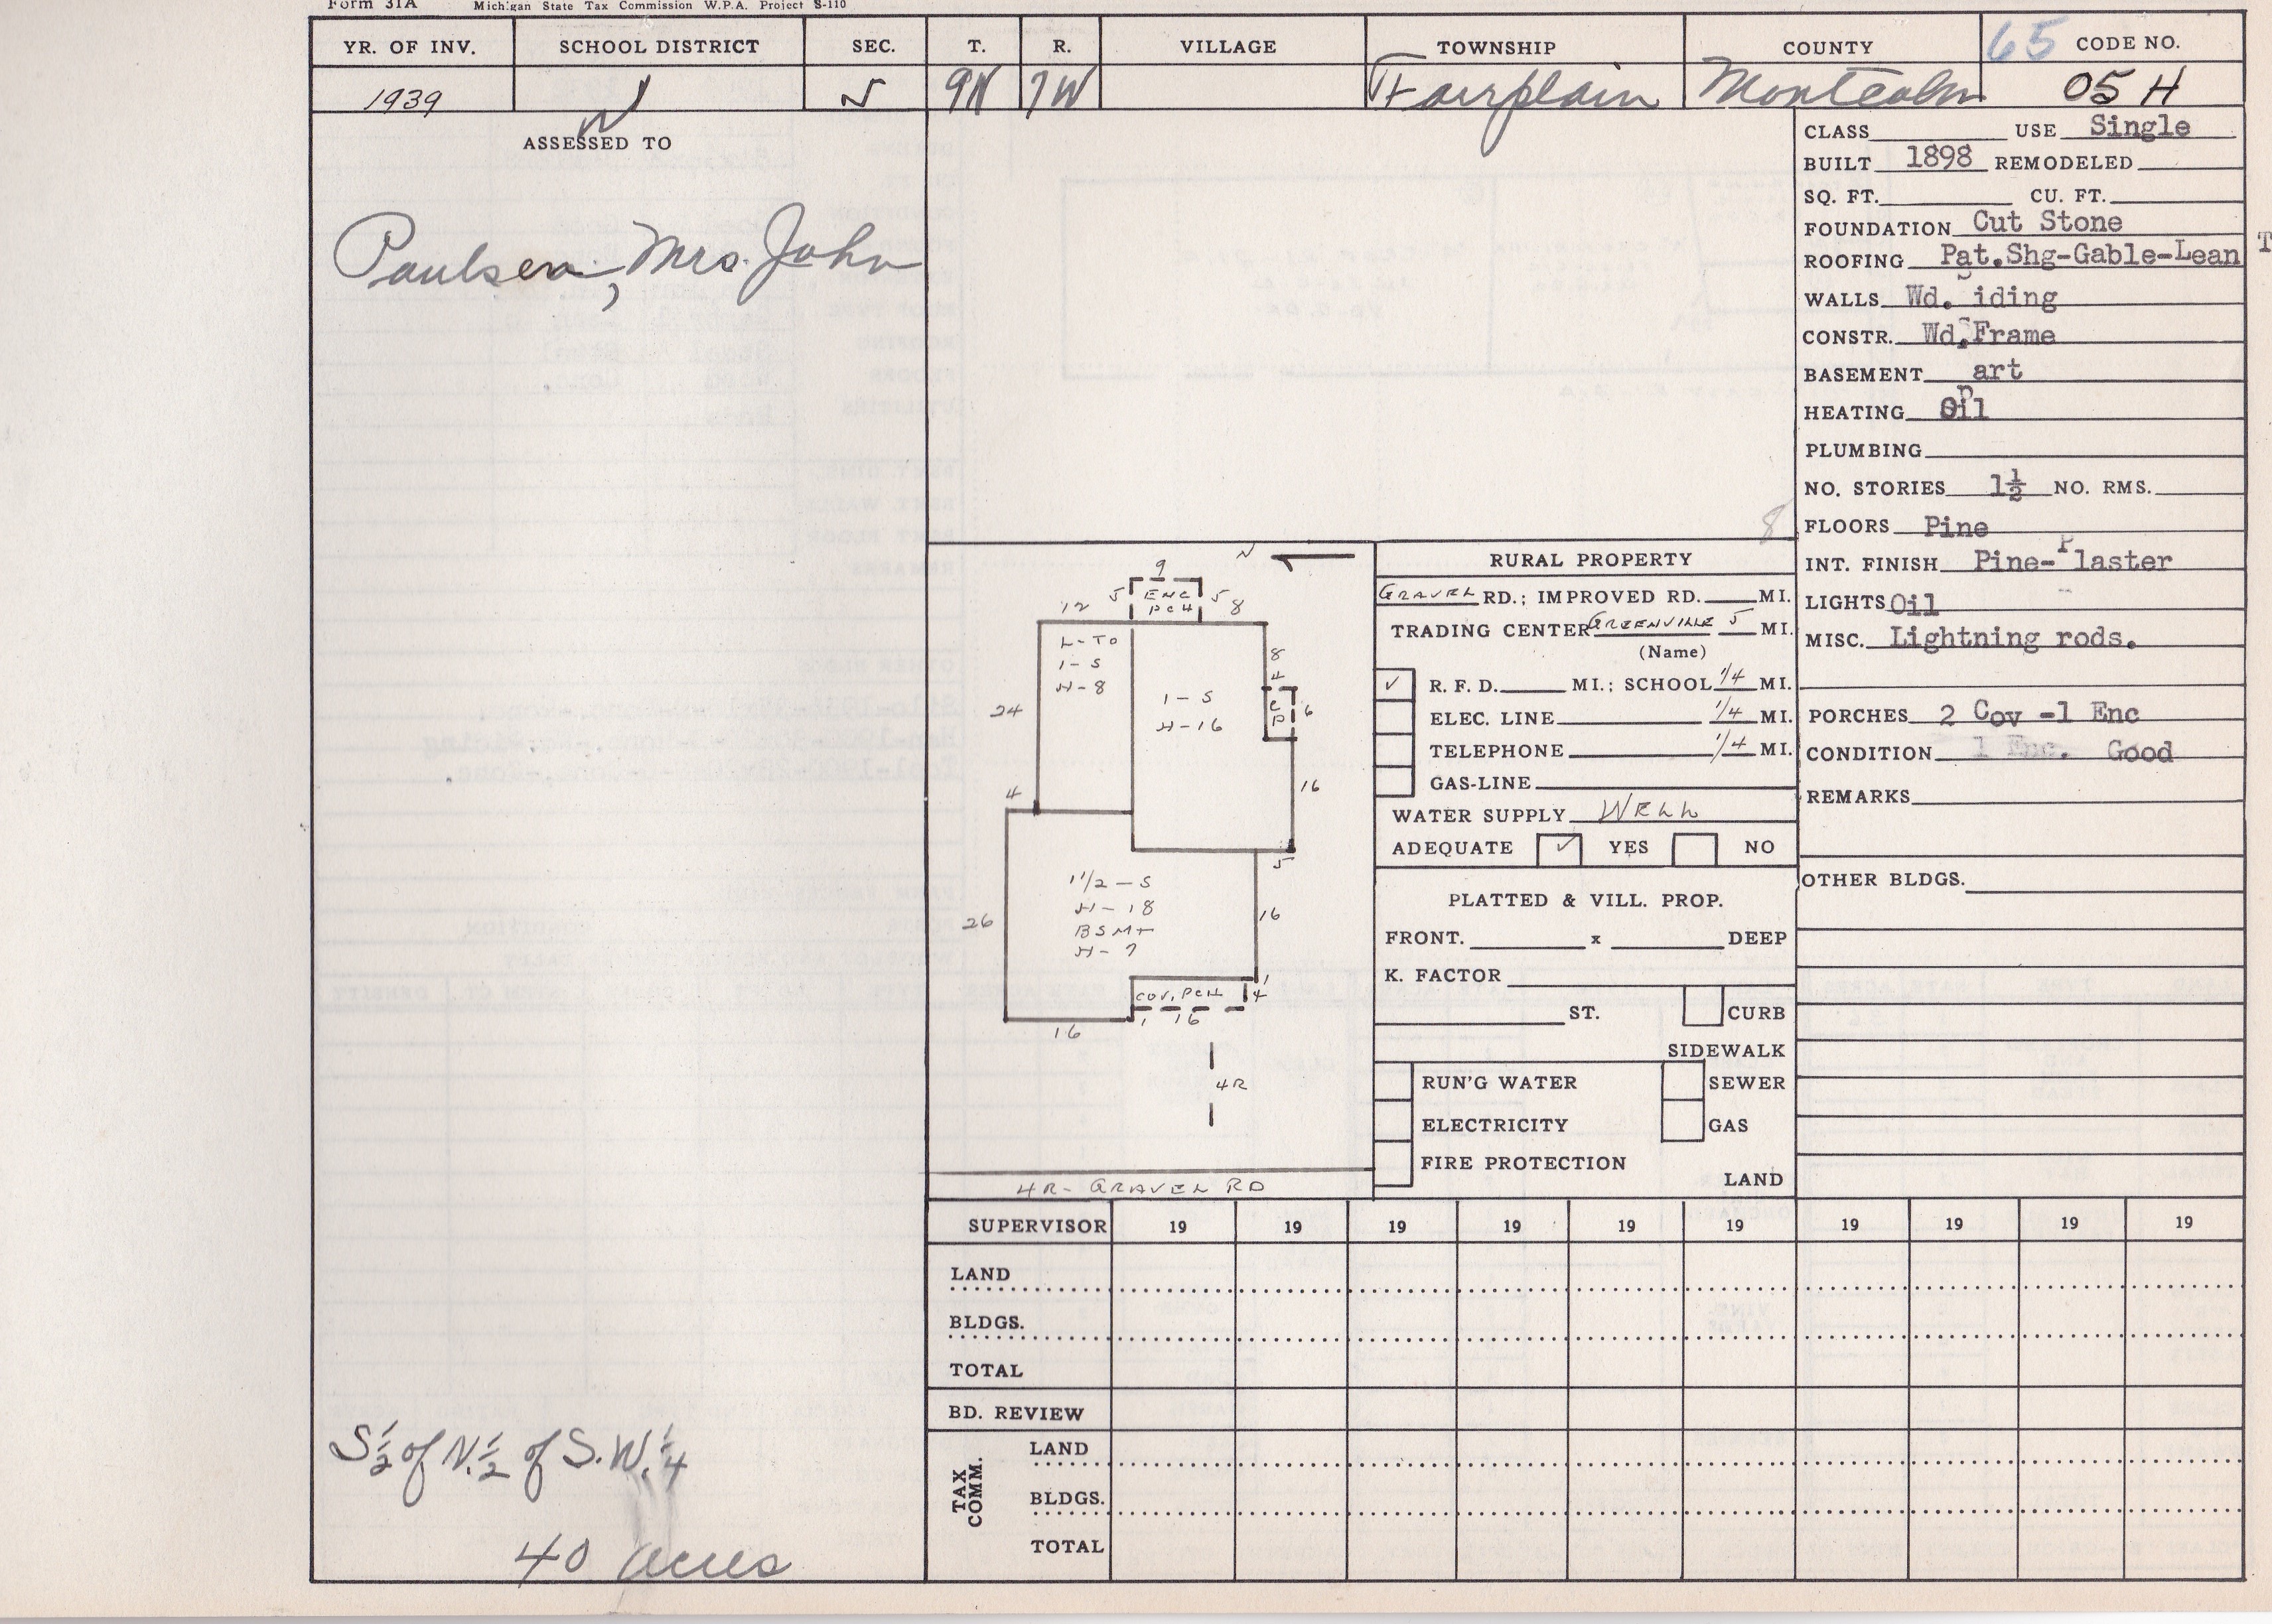 Form 31A Michigan State Tax Commission W.P.A. Project S-110
YR. OF INV. SCHOOL DISTRICT SEC. T. R. VILLAGE TOWNSHIP COUNTY 65 CODE NO.
1939 9N 7W Fairplain Montcalm 05 H
ASSESSED TO
Paulsen, Mrs. John
S ½ of N. ½ of S. W. ¼
40 acres
N
9
5 ENC PCH 5
12 8
L-TO
1-S
H-8
1-S
H-16
8
4
C P 6
24
16
4
5
1 1/2 - S
H-18
BSMT
H-7
26
16
1
COV. PCH 4
1 16
16
4R
4R- GRAVEL RD
8
RURAL PROPERTY
GRAVEL RD.; IMPROVED RD. MI.
TRADING CENTER GREENVILLE 5 MI.
(Name)
✓ R. F. D. MI.; SCHOOL 1/4 MI.
ELEC. LINE 1/4 MI.
TELEPHONE 1/4 MI.
GAS-LINE
WATER SUPPLY WELL
ADEQUATE ✓ YES NO
PLATTED & VILL. PROP.
FRONT. x DEEP
K. FACTOR
ST. CURB
SIDEWALK
RUN'G WATER SEWER
ELECTRICITY GAS
FIRE PROTECTION
LAND
CLASS USE Single
BUILT 1898 REMODELED
SQ. FT. CU. FT.
FOUNDATION Cut Stone
ROOFING Pat.Shg-Gable-Lean T
WALLS Wd. Siding
CONSTR. Wd.Frame
BASEMENT Part
HEATING Oil
PLUMBING
NO. STORIES 1½ NO. RMS.
FLOORS Pine
INT. FINISH Pine-Plaster
LIGHTS Oil
MISC. Lightning rods.
PORCHES 2 Cov -1 Enc
CONDITION 1 Enc. Good
REMARKS
OTHER BLDGS.
SUPERVISOR 19 19 19 19 19 19 19 19 19 19
LAND
BLDGS.
TOTAL
BD. REVIEW
TAX COMM.
LAND
BLDGS.
TOTAL